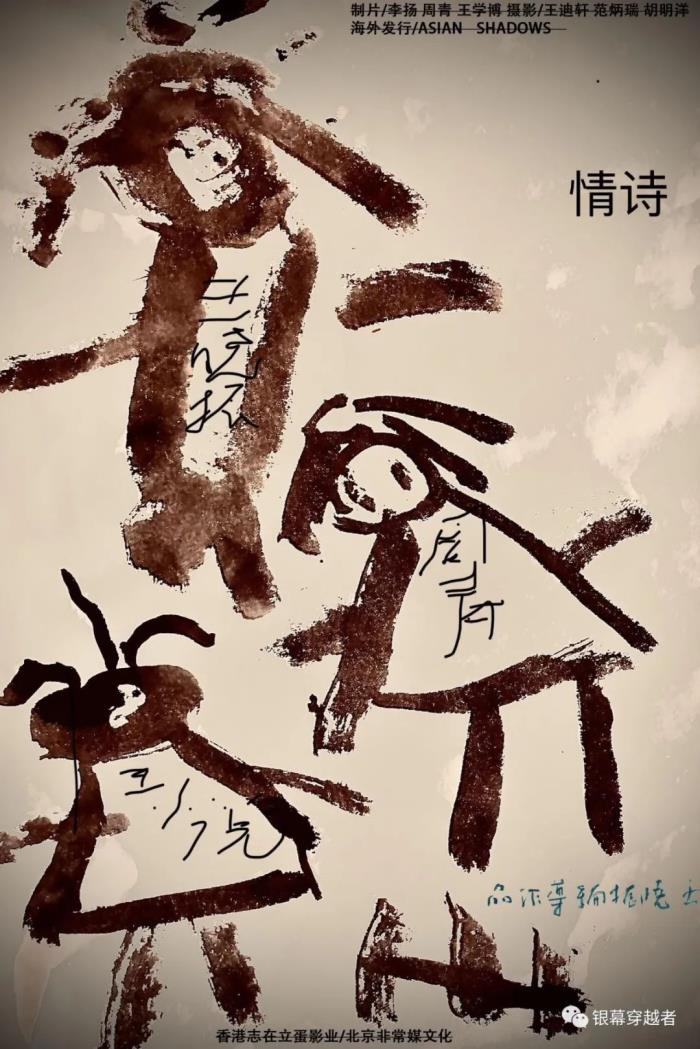 制片/李扬 周青 王学博 摄影/王迪轩 范炳瑞 胡明洋
海外发行/ASIAN SHADOWS
情诗
王晓振
周青
王晓振编導作品
银幕穿越者
香港志在立蛋影业/北京非常媒文化